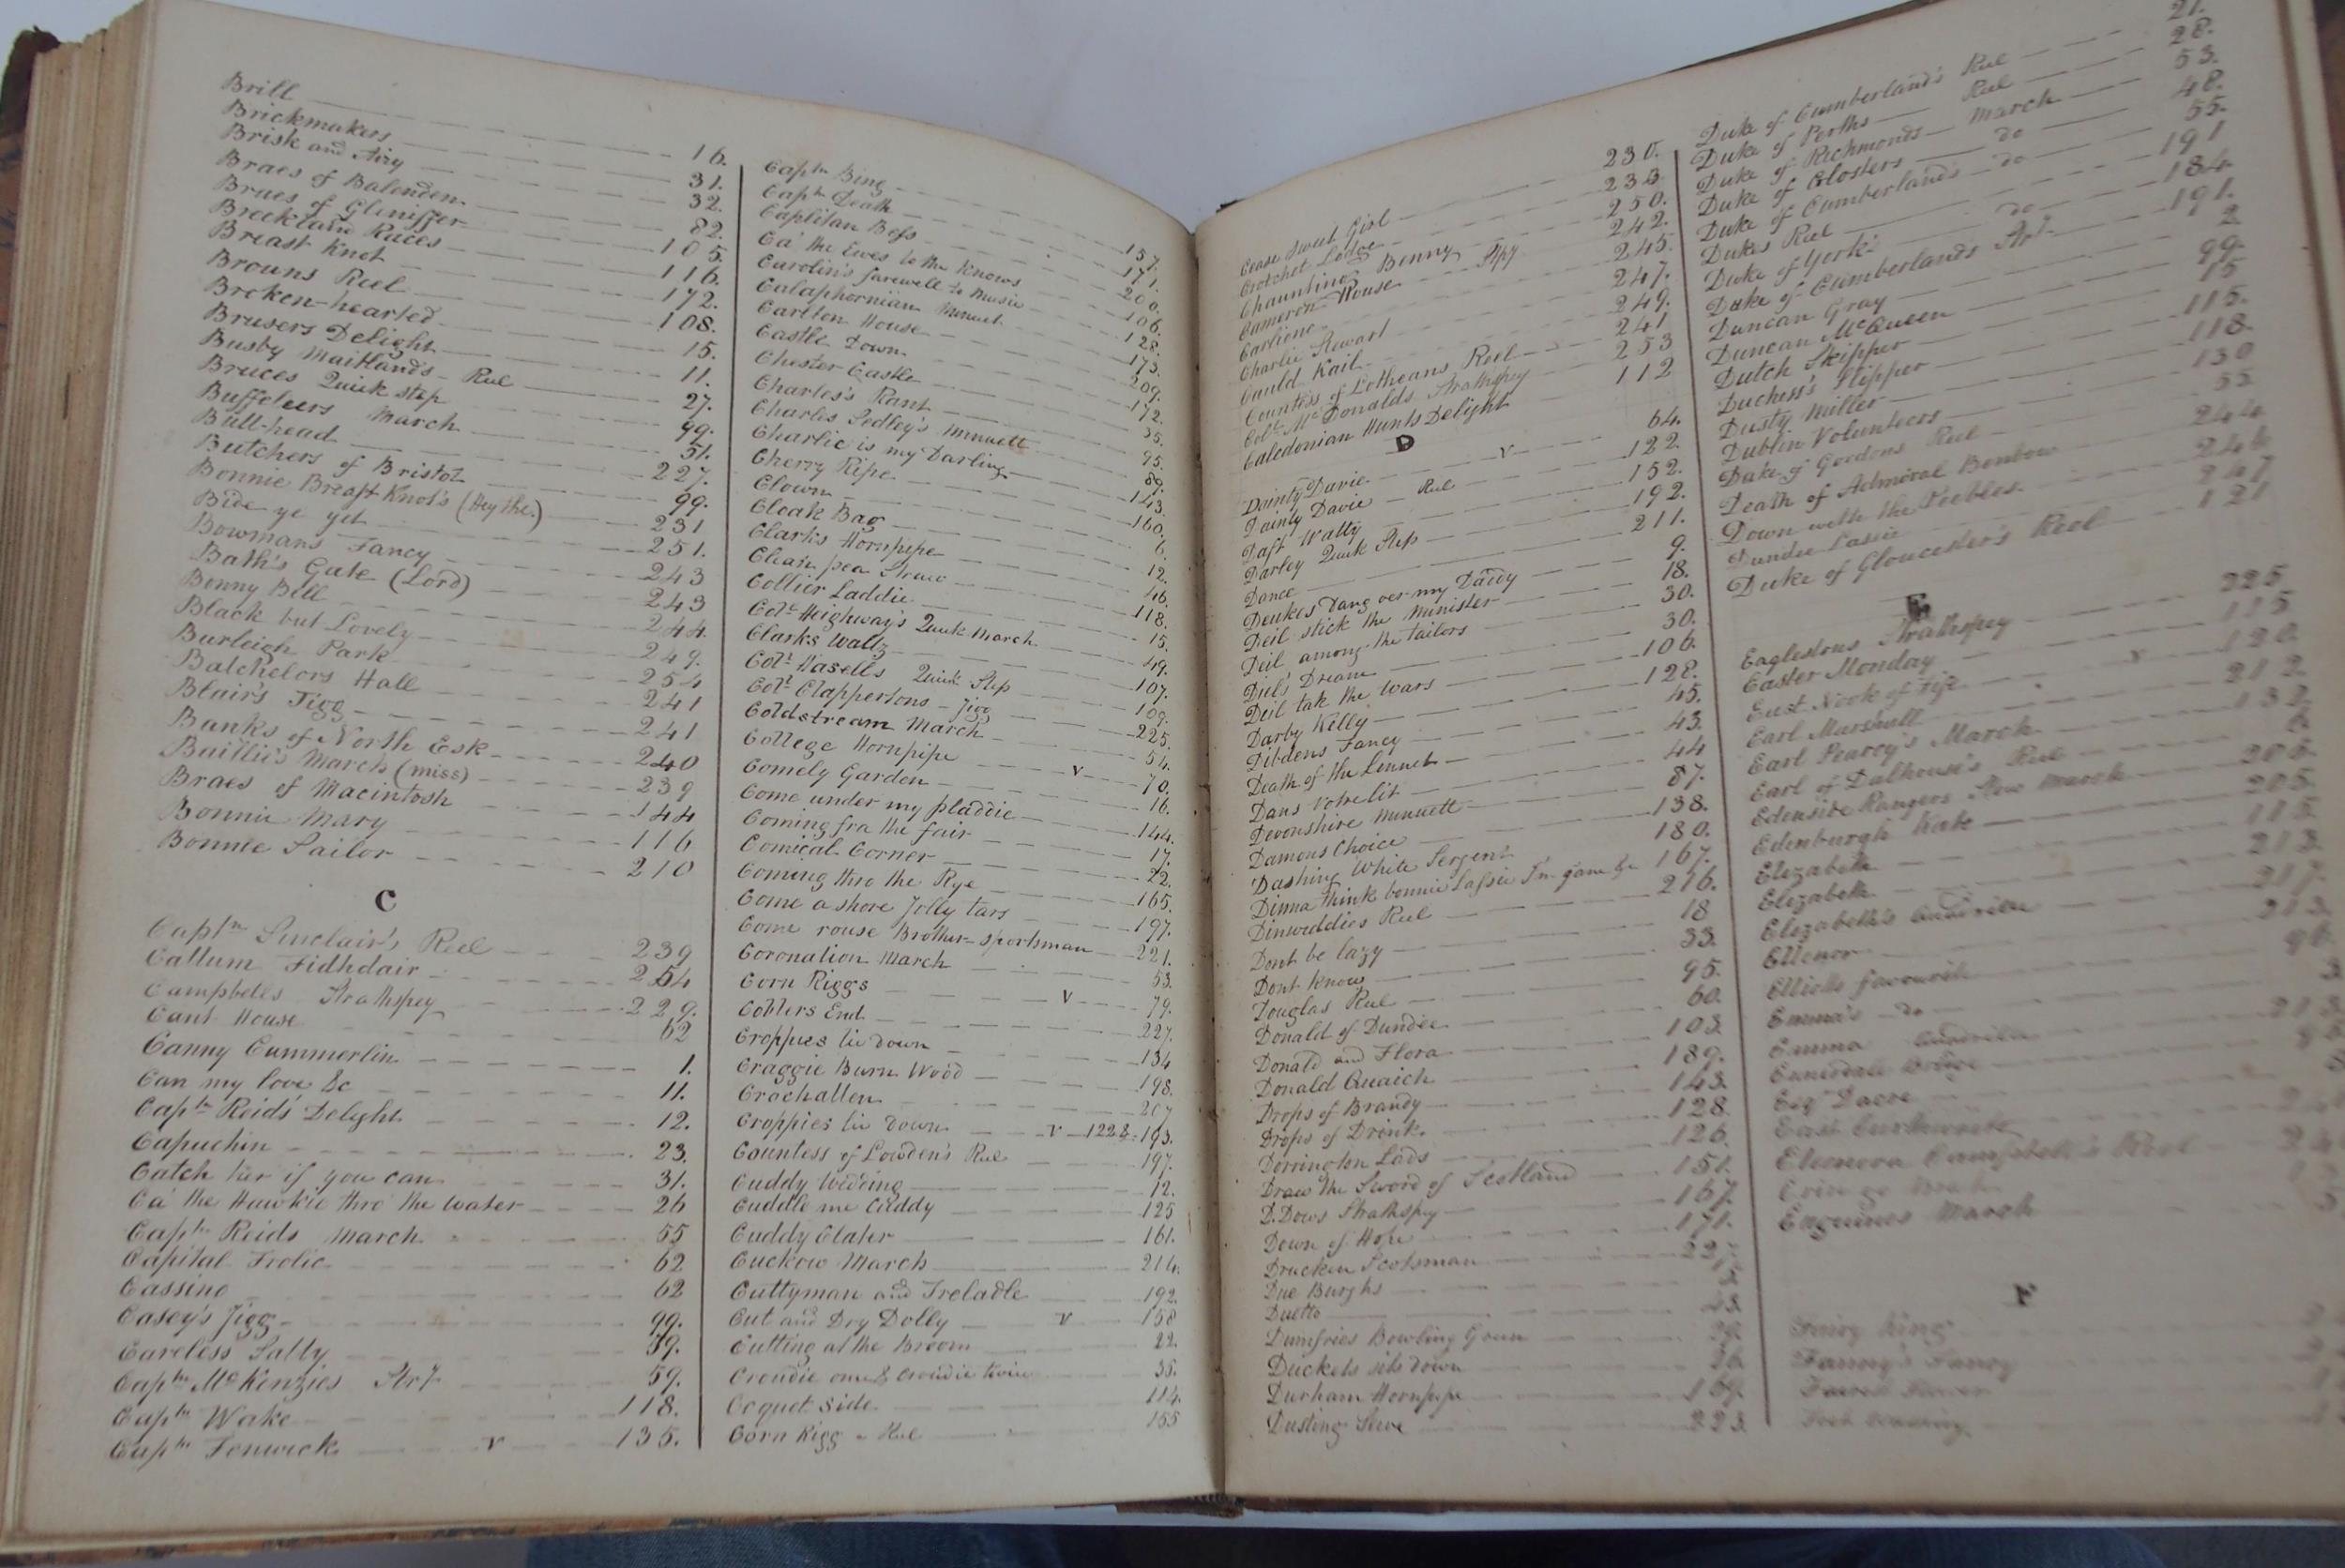 Brill 16.
Brickmakers 31.
Brisk and Airy 32.
Braes of Balenden 82.
Braes of Gleniffer 105.
Brecklaw Races 116.
Breast Knot 172.
Browns Reel 108.
Broken-hearted 15.
Brusers Delight 11.
Busby Maitlands Reel 27.
Bruces Quick step 99.
Buffeleers March 51.
Bull-head 227.
Butchers of Bristol 99.
Bonnie Breast Knot's (Hey the.) 231
Bide ye yet 251.
Bowmans Fancy 243
Bath's Gate (Lord) 243
Bonny Bell 244
Black but Lovely 249.
Burleigh Park 254
Batchelors Hall 241
Blair's Jigg 241
Banks of North Esk 240
Baillie's March (miss) 239
Braes of Macintosh 144
Bonnie Mary 116
Bonnie Sailor 210
C
Captn Sinclair's Reel 239
Callum Fidhdair 254
Campbells Strathspey 229.
Cant House 62
Canny Cummerlin 1.
Can my love &c 11.
Captn Reids' Delight 12.
Capuchin 23.
Catch her if you can 31.
Ca' the Hawkie thro the water 26
Captn Reids March 55
Capital Frolic 62
Cassino 62
Casey's Jigg 99.
Careless Sally 39.
Captn McKenzies Str 59.
Captn Wake 118.
Captn Fenwick v 135.
Captn Bing 157.
Captn Death 171.
Caplitan Bess 200.
Ca' the Ewes to the Knows 106.
Carolin's farewell to Music 128.
Calaphornian Minuet 173.
Carlton House 209.
Castle Down 172.
Chester Castle 35.
Charles's Rant 95.
Charles Sedley's Minuett 89.
Charlie is my Darling 143.
Cherry Ripe 160.
Clown 6.
Cloak Bag 12.
Clarks Hornpipe 46.
Clean pea Straw 118.
Collier Laddie 15.
Colt Heighway's Quick March 49.
Clarks Waltz 107.
Colt Hasells Quick Step 109.
Colt Clappertons Jigg 225.
Coldstream March 54.
College Hornpipe v 70.
Comely Garden 16.
Come under my pladdie 144.
Coming fra the fair 17.
Comical Corner 22.
Coming thro the Rye 165.
Come a shore Jolly tars 197.
Come rouse Brother sportsman 221.
Coronation March 53.
Corn Riggs v 79.
Coblers End 227.
Croppies lie down 134
Craggie Burn Wood 198.
Crochallen 207
Croppies lie down v 122& 193.
Countess of Lowden's Reel 197.
Cuddy Wedding 12.
Cuddle me Cuddy 125
Cuddy Clater 161.
Cuckow March 214.
Cuttyman and Treladle 192.
Cut and Dry Dolly v 158
Cutting at the Broom 22.
Croudie ome & Croudie twice 35.
Coquet Side 114.
Corn Rigg Reel 155
Cease Sweet Girl 230.
Crotchet Lodge 233.
Chaunting Benny 250.
Cameron House Stpy 242.
Carlione 245.
Charlie Stewart 247.
Cauld Kail 249.
Countess of Lotheans Reel 241
Colt McDonalds Strathspey 253
Caledonian Hunts Delight 112
D
Dainty Davie v 64.
Dainty Davie Reel 122.
Daft Watty 152.
Darley Quick Step 192.
Dance 211.
Deukes dang oer my Daddy 9.
Deil stick the Minister 18.
Deil among the tailors 30.
Diel's Dream 30.
Deil tak the wars 106.
Darby Kelly 128.
Dibdens Fancy 45.
Death of the Linnet 43.
Dans Votre lit 44
Devonshire Minuett 87.
Damons Choice 138.
Dashing White Sergent 180.
Dinna think bonnie Lassie I'm gaun to 167.
Dinwiddies Reel 216.
Dont be lazy 18
Dont know 33.
Douglas Reel 95.
Donald of Dundee 60.
Donald and Flora 103.
Donald Quaich 189.
Drops of Brandy 143.
Drops of Drink 128
Dorrington Lads 126.
Draw the Sword of Scotland 151.
D. Dows Strathspey 167.
Down of Hope 171.
Drucken Scotsman 227.
Due Burghs
Duetto
Dumfries Bowling Green
Duckets sits down
Durham Hornpipe 169.
Dusting Sieve 223
Duke of Cumberland's Reel 21.
Duke of Perths Reel 28.
Duke of Richmonds March 53.
Duke of Glosters do 48.
Duke of Cumberlands do 55.
Dukes Reel 191
Duke of York do 184.
Duke of Cumberlands Strt 191.
Duncan Gray 2
Duncan McQueen 99.
Dutch Skipper 15
Duchess's Slipper 115.
Dusty Miller 118.
Dublin Volunteers 130
Duke of Gordons Reel 55
Death of Admiral Benbow 244
Down with the Peebles 246
Dundee Lasie 247
Duke of Gloucester's Reel 121
E
Eaglestons Strathspey 225
Easter Monday 115
East Nook of Fife v 120.
Earl Marshall 212.
Earl Pearcy's March 132.
Earl of Dalhouse's Reel 6.
Edenside Rangers Slow March 208.
Edenburgh Kate 205.
Elizabeth 115.
Elezabeth 213.
Elezabeth's Quadrille 217.
Ellenor 213.
Elliotts favourite
Emma's do
Emma Quadrille
Esq Dacre
East Curthwaite
Eleonora Campbell's Reel
Engenies March
F
Fairy King
Fanny's Fancy